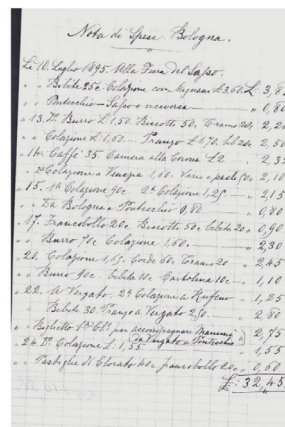 Nota di Spese Bologna.
Lì 10. Luglio 1895. Alla Fiera del Sasso.
" Bibite 25c Colazione con Mignani £ 3,60 £ 3,85
" Pontecchio – Sasso e viceversa " 0,80
" 13. Burro £ 1,50. Biscotti 50, Tram 20c, 2,20
" Colazione £ 1,60.– Pranzo £ 1,70. 20c 2,50
" 14. Caffè 35 Camera alla Corona £ 2 2,35
" 2a Colazione a Venezia 1,60. Varie paste 50c " 2,10
" 15. 1a Colazione 90c 2a Colazione 1,25 " 2,15
" Da Bologna a Pontecchio 0,80 " 0,80
" 17. Francobollo 20c Biscotti 50c bibite 20c 0,90
" Burro 70c Colazione 1,60. " 2,30
" 20. Colazione 1,65. Corde 60. Tram 20 " 2,45
" Burro 90c bibita 10c Cartolina 10c " 1,10
" 22. a Vergato. 2a Colazione a " 1,25
" Bibite 30. Pranzo a Vergato 2,50. " 2,80
" Biglietto per accompagnare Mamma da Vergato a Pontecchio " 2,75
" 24. 2a Colazione £: 1,55 " 1,55
" Pastiglie di Clorato 40c francobollo 20c " 0,60
£: 32,45